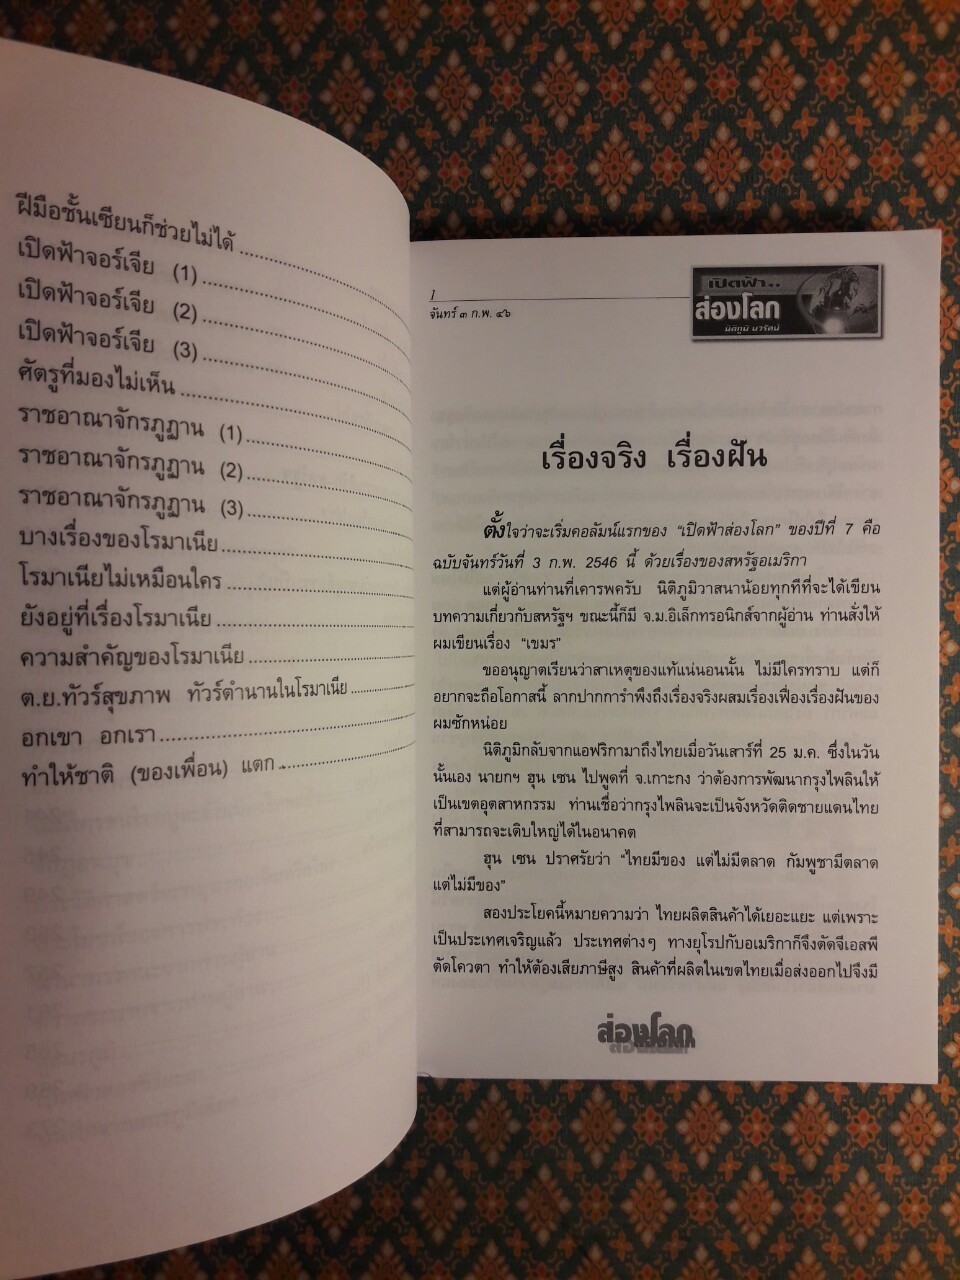 ฝีมือชั้นเซียนก็ช่วยไม่ได้
เปิดฟ้าจอร์เจีย (1)
เปิดฟ้าจอร์เจีย (2)
เปิดฟ้าจอร์เจีย (3)
ศัตรูที่มองไม่เห็น
ราชอาณาจักรภูฏาน (1)
ราชอาณาจักรภูฏาน (2)
ราชอาณาจักรภูฏาน (3)
บางเรื่องของโรมาเนีย
โรมาเนียไม่เหมือนใคร
ยังอยู่ที่เรื่องโรมาเนีย
ความสำคัญของโรมาเนีย
ต.ย.ทัวร์สุขภาพ ทัวร์ตำนานในโรมาเนีย
อกเขา อกเรา
ทำให้ชาติ (ของเพื่อน) แตก
1
จันทร์ ๓ ก.พ. ๔๖
เปิดฟ้า..
ส่องโลก
นิติภูมิ นวรัตน์
เรื่องจริง เรื่องฝัน
ตั้งใจว่าจะเริ่มคอลัมน์แรกของ “เปิดฟ้าส่องโลก” ของปีที่ 7 คือ
ฉบับจันทร์วันที่ 3 ก.พ. 2546 นี้ ด้วยเรื่องของสหรัฐอเมริกา
แต่ผู้อ่านท่านที่เคารพครับ นิติภูมิวาสนาน้อยทุกทีที่จะได้เขียน
บทความเกี่ยวกับสหรัฐฯ ขณะนี้ก็มี จ.ม.อิเล็กทรอนิกส์จากผู้อ่าน ท่านสั่งให้
ผมเขียนเรื่อง “เขมร”
ขออนุญาตเรียนว่าสาเหตุของแท้แน่นอนนั้น ไม่มีใครทราบ แต่ก็
อยากจะถือโอกาสนี้ ลากปากการำพึงถึงเรื่องจริงผสมเรื่องเฟื่องเรื่องฝันของ
ผมซักหน่อย
นิติภูมิกลับจากแอฟริกามาถึงไทยเมื่อวันเสาร์ที่ 25 ม.ค. ซึ่งในวัน
นั้นเอง นายกฯ ฮุน เซน ไปพูดที่ จ.เกาะกง ว่าต้องการพัฒนากรุงไพลินให้
เป็นเขตอุตสาหกรรม ท่านเชื่อว่ากรุงไพลินจะเป็นจังหวัดติดชายแดนไทย
ที่สามารถจะเติบใหญ่ได้ในอนาคต
ฮุน เซน ปราศรัยว่า “ไทยมีของ แต่ไม่มีตลาด กัมพูชามีตลาด
แต่ไม่มีของ”
สองประโยคนี้หมายความว่า ไทยผลิตสินค้าได้เยอะแยะ แต่เพราะ
เป็นประเทศเจริญแล้ว ประเทศต่างๆ ทางยุโรปกับอเมริกาก็จึงตัดจีเอสพี
ตัดโควตา ทำให้ต้องเสียภาษีสูง สินค้าที่ผลิตในเขตไทยเมื่อส่งออกไปจึงมี
ส่องโลก